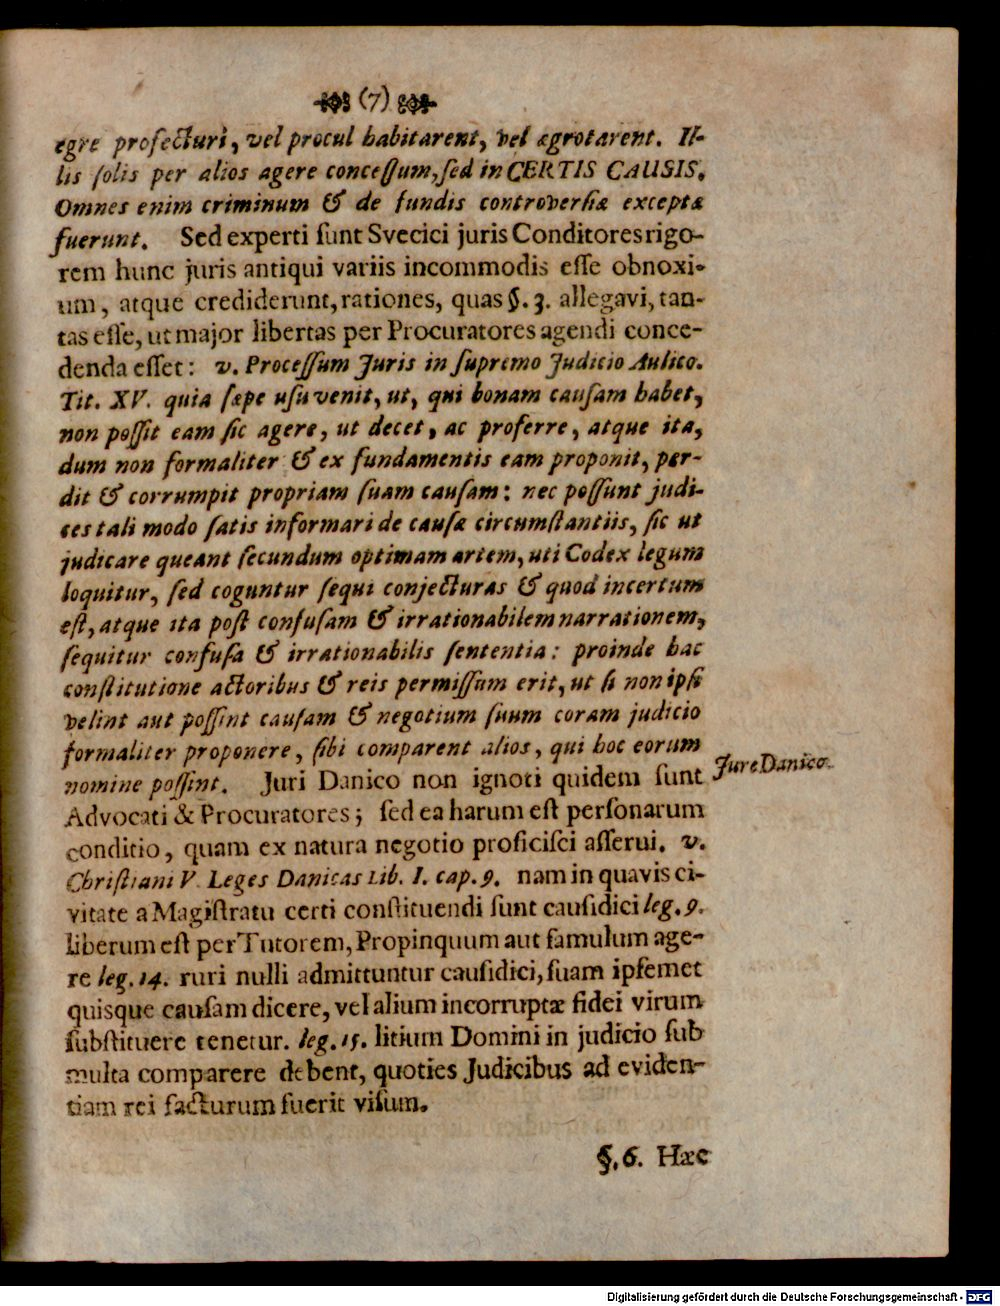 (7)
egre profecturi, vel procul habitarent, vel ægrotarent. Il-
lis ſolis per alios agere conceſſum, ſed in CERTIS CAUSIS.
Omnes enim criminum & de fundis controverſiæ exceptæ
fuerunt. Sed experti ſunt Svecici juris Conditores rigo-
rem hunc juris antiqui variis incommodis eſſe obnoxi-
um, atque crediderunt, rationes, quas §. 3. allegavi, tan-
tas eſſe, ut major libertas per Procuratores agendi conce-
denda eſſet: v. Proceſſum Juris in ſupremo Judicio Aulico.
Tit. XV. quia ſæpe uſu venit, ut, qui bonam cauſam habet,
non poſſit eam ſic agere, ut decet, ac proferre, atque ita,
dum non formaliter & ex fundamentis eam proponit, per-
dit & corrumpit propriam ſuam cauſam: nec poſſunt judi-
ces tali modo ſatis informari de cauſæ circumſtantiis, ſic ut
judicare queant ſecundum optimam artem, uti Codex legum
loquitur, ſed coguntur ſequi conjecturas & quod incertum
eſt, atque ita poſt confuſam & irrationabilem narrationem,
ſequitur confuſa & irrationabilis ſententia: proinde hac
conſtitutione actoribus & reis permiſſum erit, ut ſi non ipſi
velint aut poſſint cauſam & negotium ſuum coram judicio
formaliter proponere, ſibi comparent alios, qui hoc eorum
nomine poſſint. Juri Danico non ignoti quidem ſunt
Jure Danico.
Advocati & Procuratores; ſed ea harum eſt perſonarum
conditio, quam ex natura negotio proficiſci aſſerui. v.
Chriſtiani V. Leges Danicas Lib. I. cap. 9. nam in quavis ci-
vitate a Magiſtratu certi conſtituendi ſunt cauſidici leg. 9.
liberum eſt per Tutorem, Propinquum aut famulum age-
re leg. 14. ruri nulli admittuntur cauſidici, ſuam ipſemet
quisque cauſam dicere, vel alium incorruptæ fidei virum
ſubſtituere tenetur. leg. 15. litium Domini in judicio ſub
multa comparere debent, quoties Judicibus ad eviden-
tiam rei facturum fuerit viſum.
§. 6. Hæc
Digitalisierung gefördert durch die Deutsche Forschungsgemeinschaft - DFG